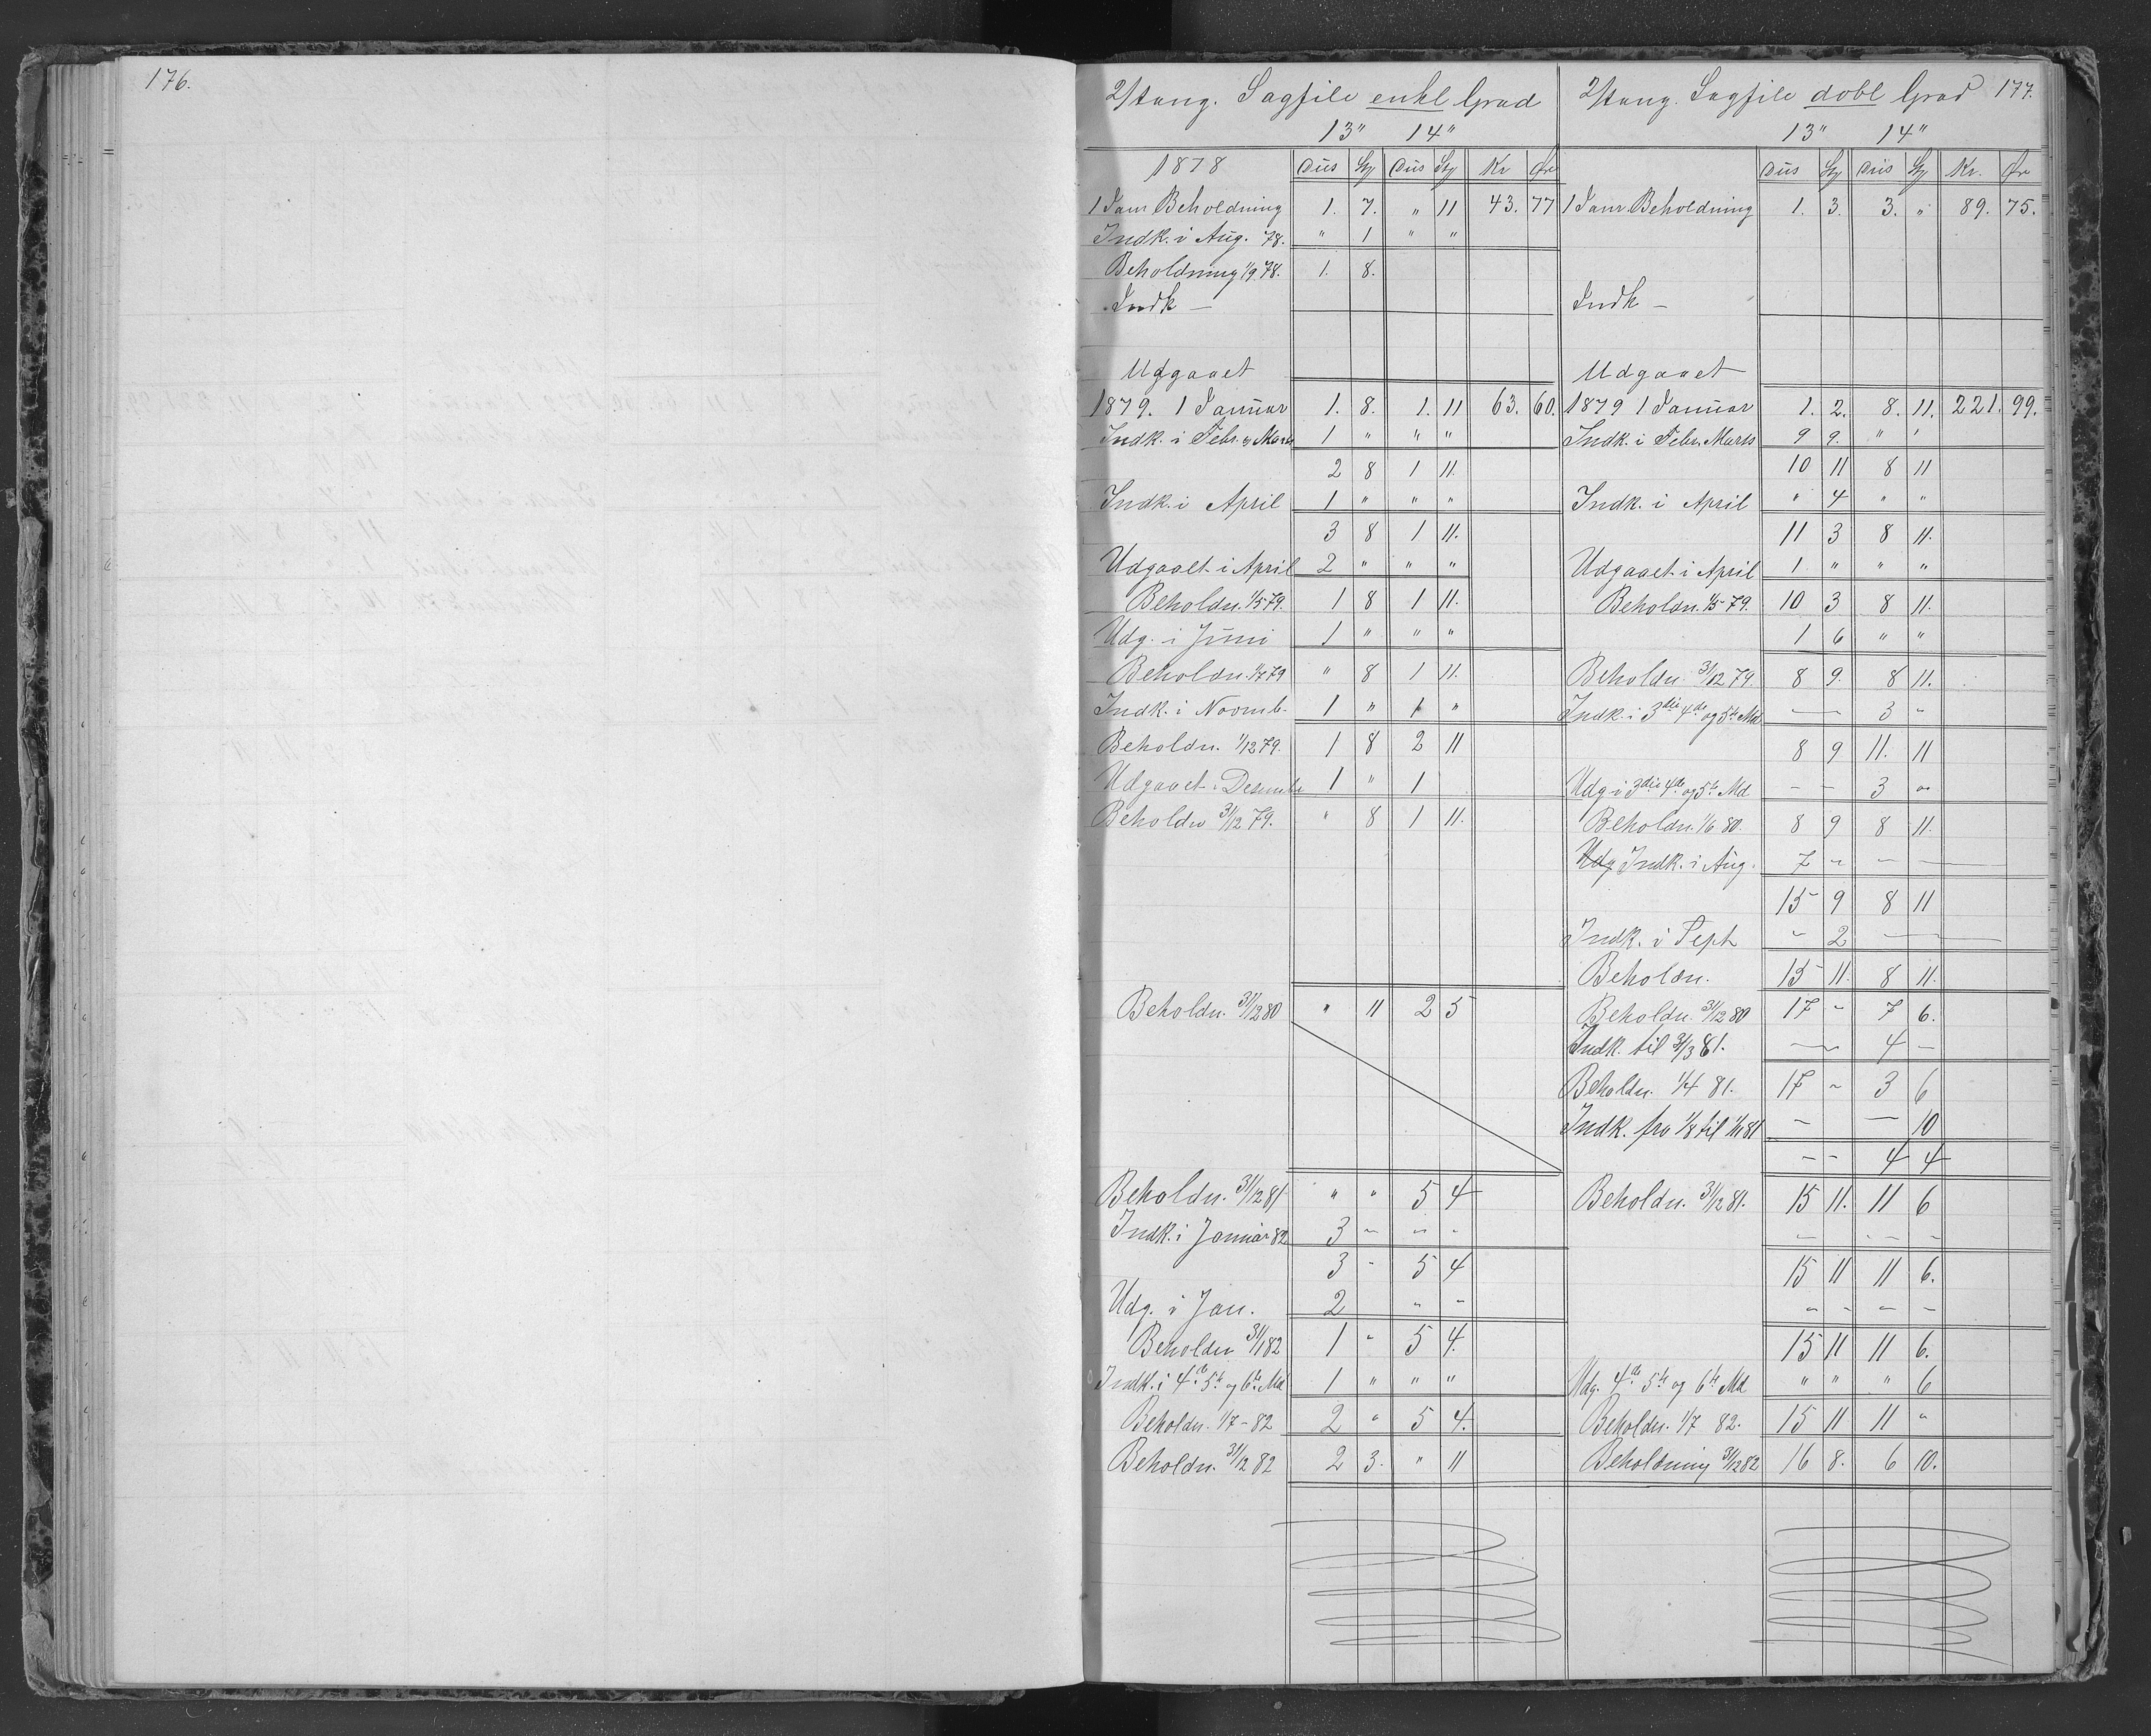 176.
2/tang. Sagfile enkl Grad
13" 14"
1878 Dus Sty Dus Sty Kr Øre
1 Janr Beholdning 1. 7. " 11 43. 77
Indk. i Aug. 78. " 1 " "
Beholdning 1/9 78. 1. 8.
Indk —
Udgaaet
1879. 1 Januar 1. 8. 1. 11 63. 60.
Indk. i Febr. og Marts 1 " " "
2 8 1 11.
Indk. i April 1 " " "
3 8 1 11.
Udgaaet i April 2 " " "
Beholdn. 1/5 79. 1 8 1 11.
Udg. i Juni 1 " " "
Beholdn. 1/7 79 " 8 1 11.
Indk. i Novmb. 1 " 1 "
Beholdn. 1/12 79. 1 8 2 11
Udgaaet i Desembr 1 " 1
Beholdn 31/12 79. " 8 1 11.
Beholdn. 31/12 80 " 11 2 5
Beholdn. 31/12 81 " " 5 4
Indk. i Januar 82 3 – – –
3 – 5 4
Udg. i Jan. 2 – –
Beholdn 31/1 82 1 – 5 4.
Indk. i 4de 5te og 6te Md 1 " " "
Beholdn. 1/7 - 82 2 " 5 4.
Beholdn. 31/12 82 2 3. " 11
2/tang. Sagfile dobl Grad 177.
13" 14"
Dus Sty Dus Sty Kr. Øre
1 Janr. Beholdning 1. 3. 3. " 89. 75.
Indk —
Udgaaet
1879 1 Januar 1. 2. 8. 11. 221. 99.
Indk. i Febr. Marts 9 9. " "
10 11 8 11
Indk. i April " 4 " "
11 3 8 11.
Udgaaet i April 1 " " "
Beholdn. 1/5 79. 10 3 8 11.
1 6 " "
Beholdn. 31/12 79. 8 9. 8 11.
Indk. i 3die 4de og 5te Md — 3 –
8 9 11. 11
Udg i 3die 4de og 5te Md – – 3 –
Beholdn. 1/6 80. 8 9 8 11.
Udg Indk. i Aug. 7 – – —
15 9 8 11
Indk. i Sept – 2 — —
Beholdn. 15 11. 8 11.
Beholdn. 31/12 80 17 – 7 6.
Indk. til 31/3 81. — 4 –
Beholdn. 1/4 81. 17 – 3 6
Indk. fra 1/8 til 1/11 81 – — 10
– – 4 4
Beholdn. 31/12 81. 15 11. 11 6
– – – –
15 11 11 6.
– – – –
15 11 11 6.
Udg. 4de 5te og 6te Md " " " 6
Beholdn. 1/7 82. 15 11 11 "
Beholdning 31/12 82 16 8. 6 10.